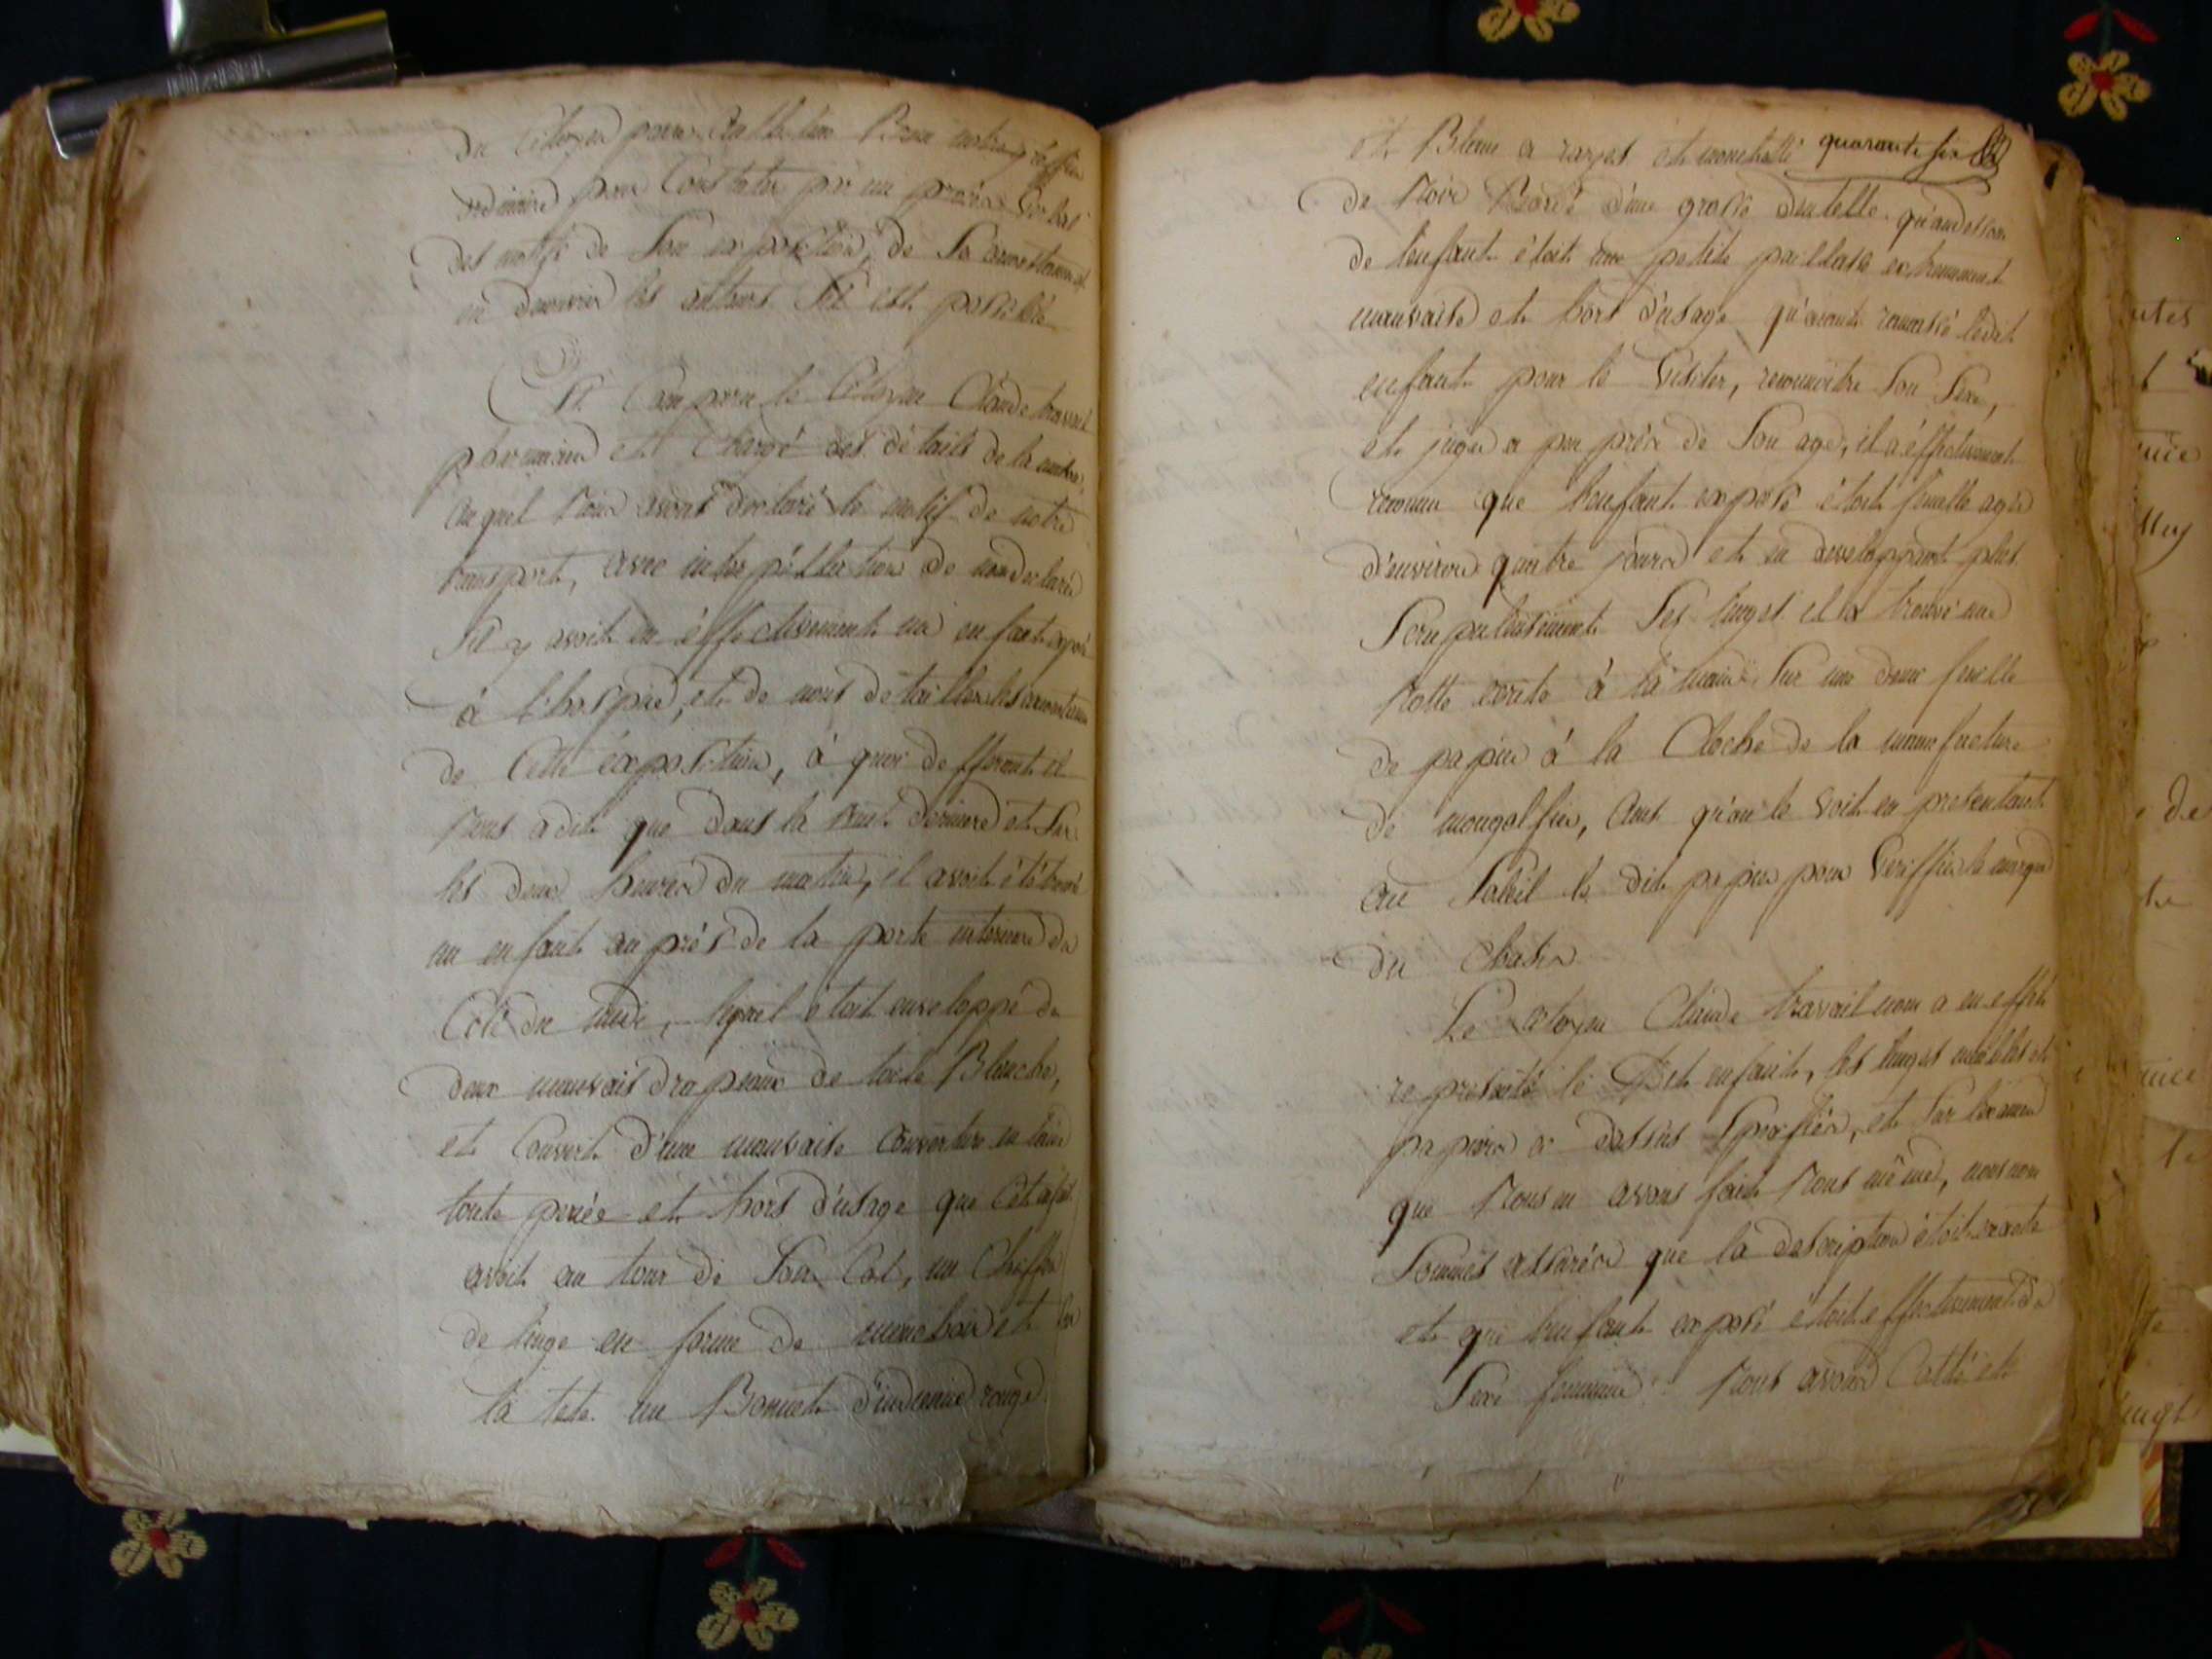 du Citoyen notre greffier
ordinaire pour Constater par un procès verbal
des motifs de Son exposition, de Sa
en decouvrir les auteurs S'il est possible
Et Comparu le Citoyen Claude travail
pharmacien et Chargé des détails de la
auquel Nous avons declaré le motif de notre
transport, avec interpéllation de nous declarer
S'il y avoit eu éffectivement un enfant exposé
à l'hospice, et de nous détailler les
de Cette éxposition, à quoi defferant il
Nous a dit que dans la nuit derniere et Sur
les deux heures du matin, il avoit été trouvé
un enfant auprès de la porte interieure du
Coté du midi, lequel étoit enveloppé de
deux mauvais drapeaux de toile Blanche,
et Couvert d'une mauvaise couverture en laine
toute percée et hors d'usage que Cet enfant
avoit au tour de Son Col, un Chiffon
de linge en forme de mouchoir et Sur
la tete un Bonnet d'indienne rouge
et Blanc a rayes et mouchetté quarante six
de Noir Bordé d'une grosse dentelle qu'au dessous
de l'enfant étoit une petite paillasse extremement
mauvaise et hors d'usage qu'ayant ramassé ledit
enfant pour le Visiter, reconnoitre Son Sexe,
et juger a peu près de Son age, il a éffectivement
reconnu que l'enfant exposé étoit femelle agée
d'environ quatre jours et en developpant plus
Scrupuleusement Ses linges il a trouvé une
Notte écrite à la main Sur une demi feuille
de papier à la Cloche de la manufacture
de mongolfier, ainsi qu'on le voit en presentant
au Soleil le dit papier pour Veriffier la marque
du Chasis
Le citoyen Claude travail nous a en effet
representé le Dit enfant, les linges meubles et
papiers ci dessus Speciffiés, et Sur l'examen
que Nous en avons fait Nous même, nous nous
Sommes assurés que la description étoit exacte
et que l'enfant exposé étoit effectivement du
Sexe feminin Nous avons Cotté et